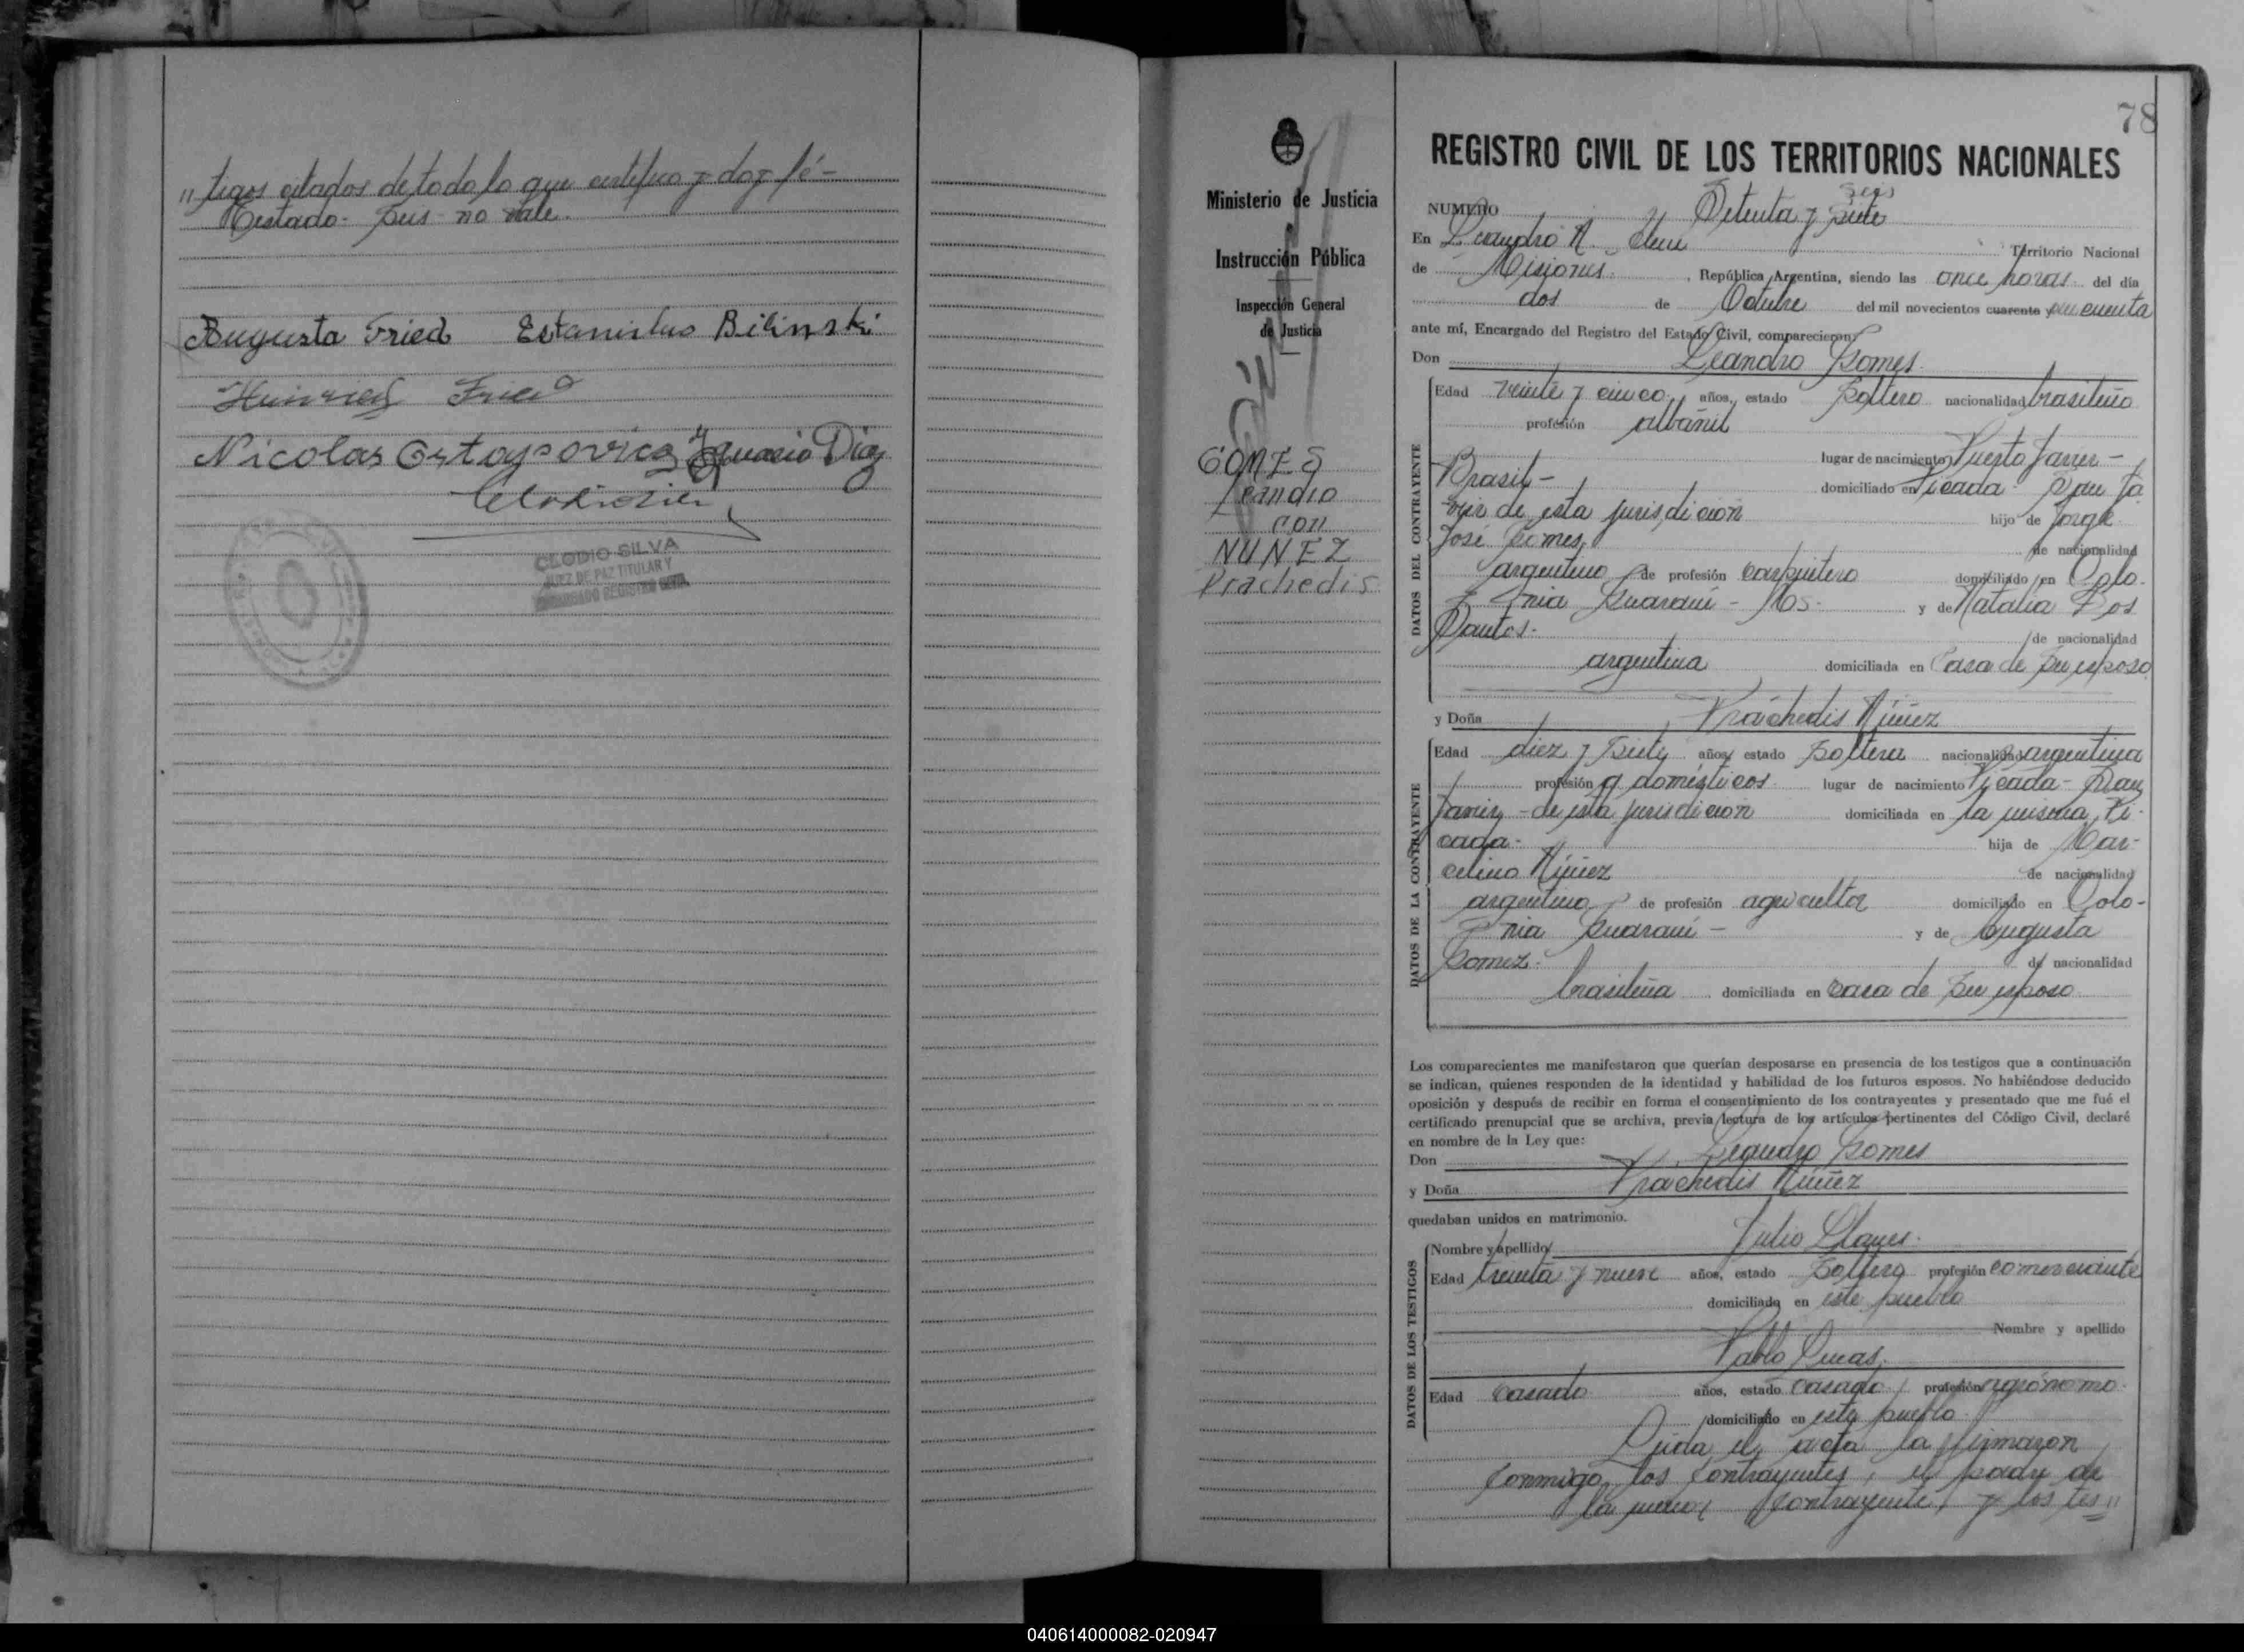 " tigos citados de todo lo que certifico y doy fé -
Testado - seis - no vale.
Augusta Fried Estanislao Bilinski
Heinrich Fried
Nicolas Ostapovicz Ignacio Diaz
CLODIO SILVA
JUEZ DE PAZ TITULAR Y
ENCARGADO REGISTRO CIVIL
78
Ministerio de Justicia
e
Instrucción Pública
Inspección General
de Justicia
GOMES
Leandro
con
NUÑEZ
Prachedis
REGISTRO CIVIL DE LOS TERRITORIOS NACIONALES
seis
NUMERO Setenta y siete
En Leandro N. Alem Territorio Nacional
de Misiones. , República Argentina, siendo las once horas del día
dos de Octubre del mil novecientos cuarenta y cincuenta
ante mí, Encargado del Registro del Estado Civil, comparecieron:
Don Leandro Gomes.
DATOS DEL CONTRAYENTE
Edad veinte y cinco años, estado soltero nacionalidad brasileño
profesión albañil
lugar de nacimiento Puerto Javier -
Brasil - domiciliado en Picada San Ja
vier de esta jurisdicion hijo de Jorge
José Gomes, de nacionalidad
argentino de profesión carpintero domiciliado en Colo-
nia Guaraní - Mos. y de Natalia Dos
Santos. de nacionalidad
argentina domiciliada en Casa de su esposo
y Doña Práchedis Núñez
DATOS DE LA CONTRAYENTE
Edad diez y siete años, estado soltera nacionalidad argentina
profesión q domésticos. lugar de nacimiento Picada - San
Javier - de esta jurisdicion domiciliada en la misma Pi-
cada. hija de Mar-
celino Núñez de nacionalidad
argentino de profesión agricultor domiciliado en Colo-
nia Guaraní - y de Augusta
Gomez. de nacionalidad
brasileña domiciliada en casa de su esposo
Los comparecientes me manifestaron que querían desposarse en presencia de los testigos que a continuación
se indican, quienes responden de la identidad y habilidad de los futuros esposos. No habiéndose deducido
oposición y después de recibir en forma el consentimiento de los contrayentes y presentado que me fué el
certificado prenupcial que se archiva, previa lectura de los artículos pertinentes del Código Civil, declaré
en nombre de la Ley que:
Don Leandro Gomes
y Doña Prachedis Núñez
quedaban unidos en matrimonio.
DATOS DE LOS TESTIGOS
Nombre y apellido Julio Llanes.
Edad treinta y nueve años, estado soltero profesión comerciante
domiciliado en este pueblo
Nombre y apellido
Pablo Lucas.
Edad casado años, estado casado profesión agrónomo.
domiciliado en este pueblo.
Leida el acta la firmaron
conmigo, los contrayentes, el padre de
la menor contrayente, y los tes "
040614000082-020947